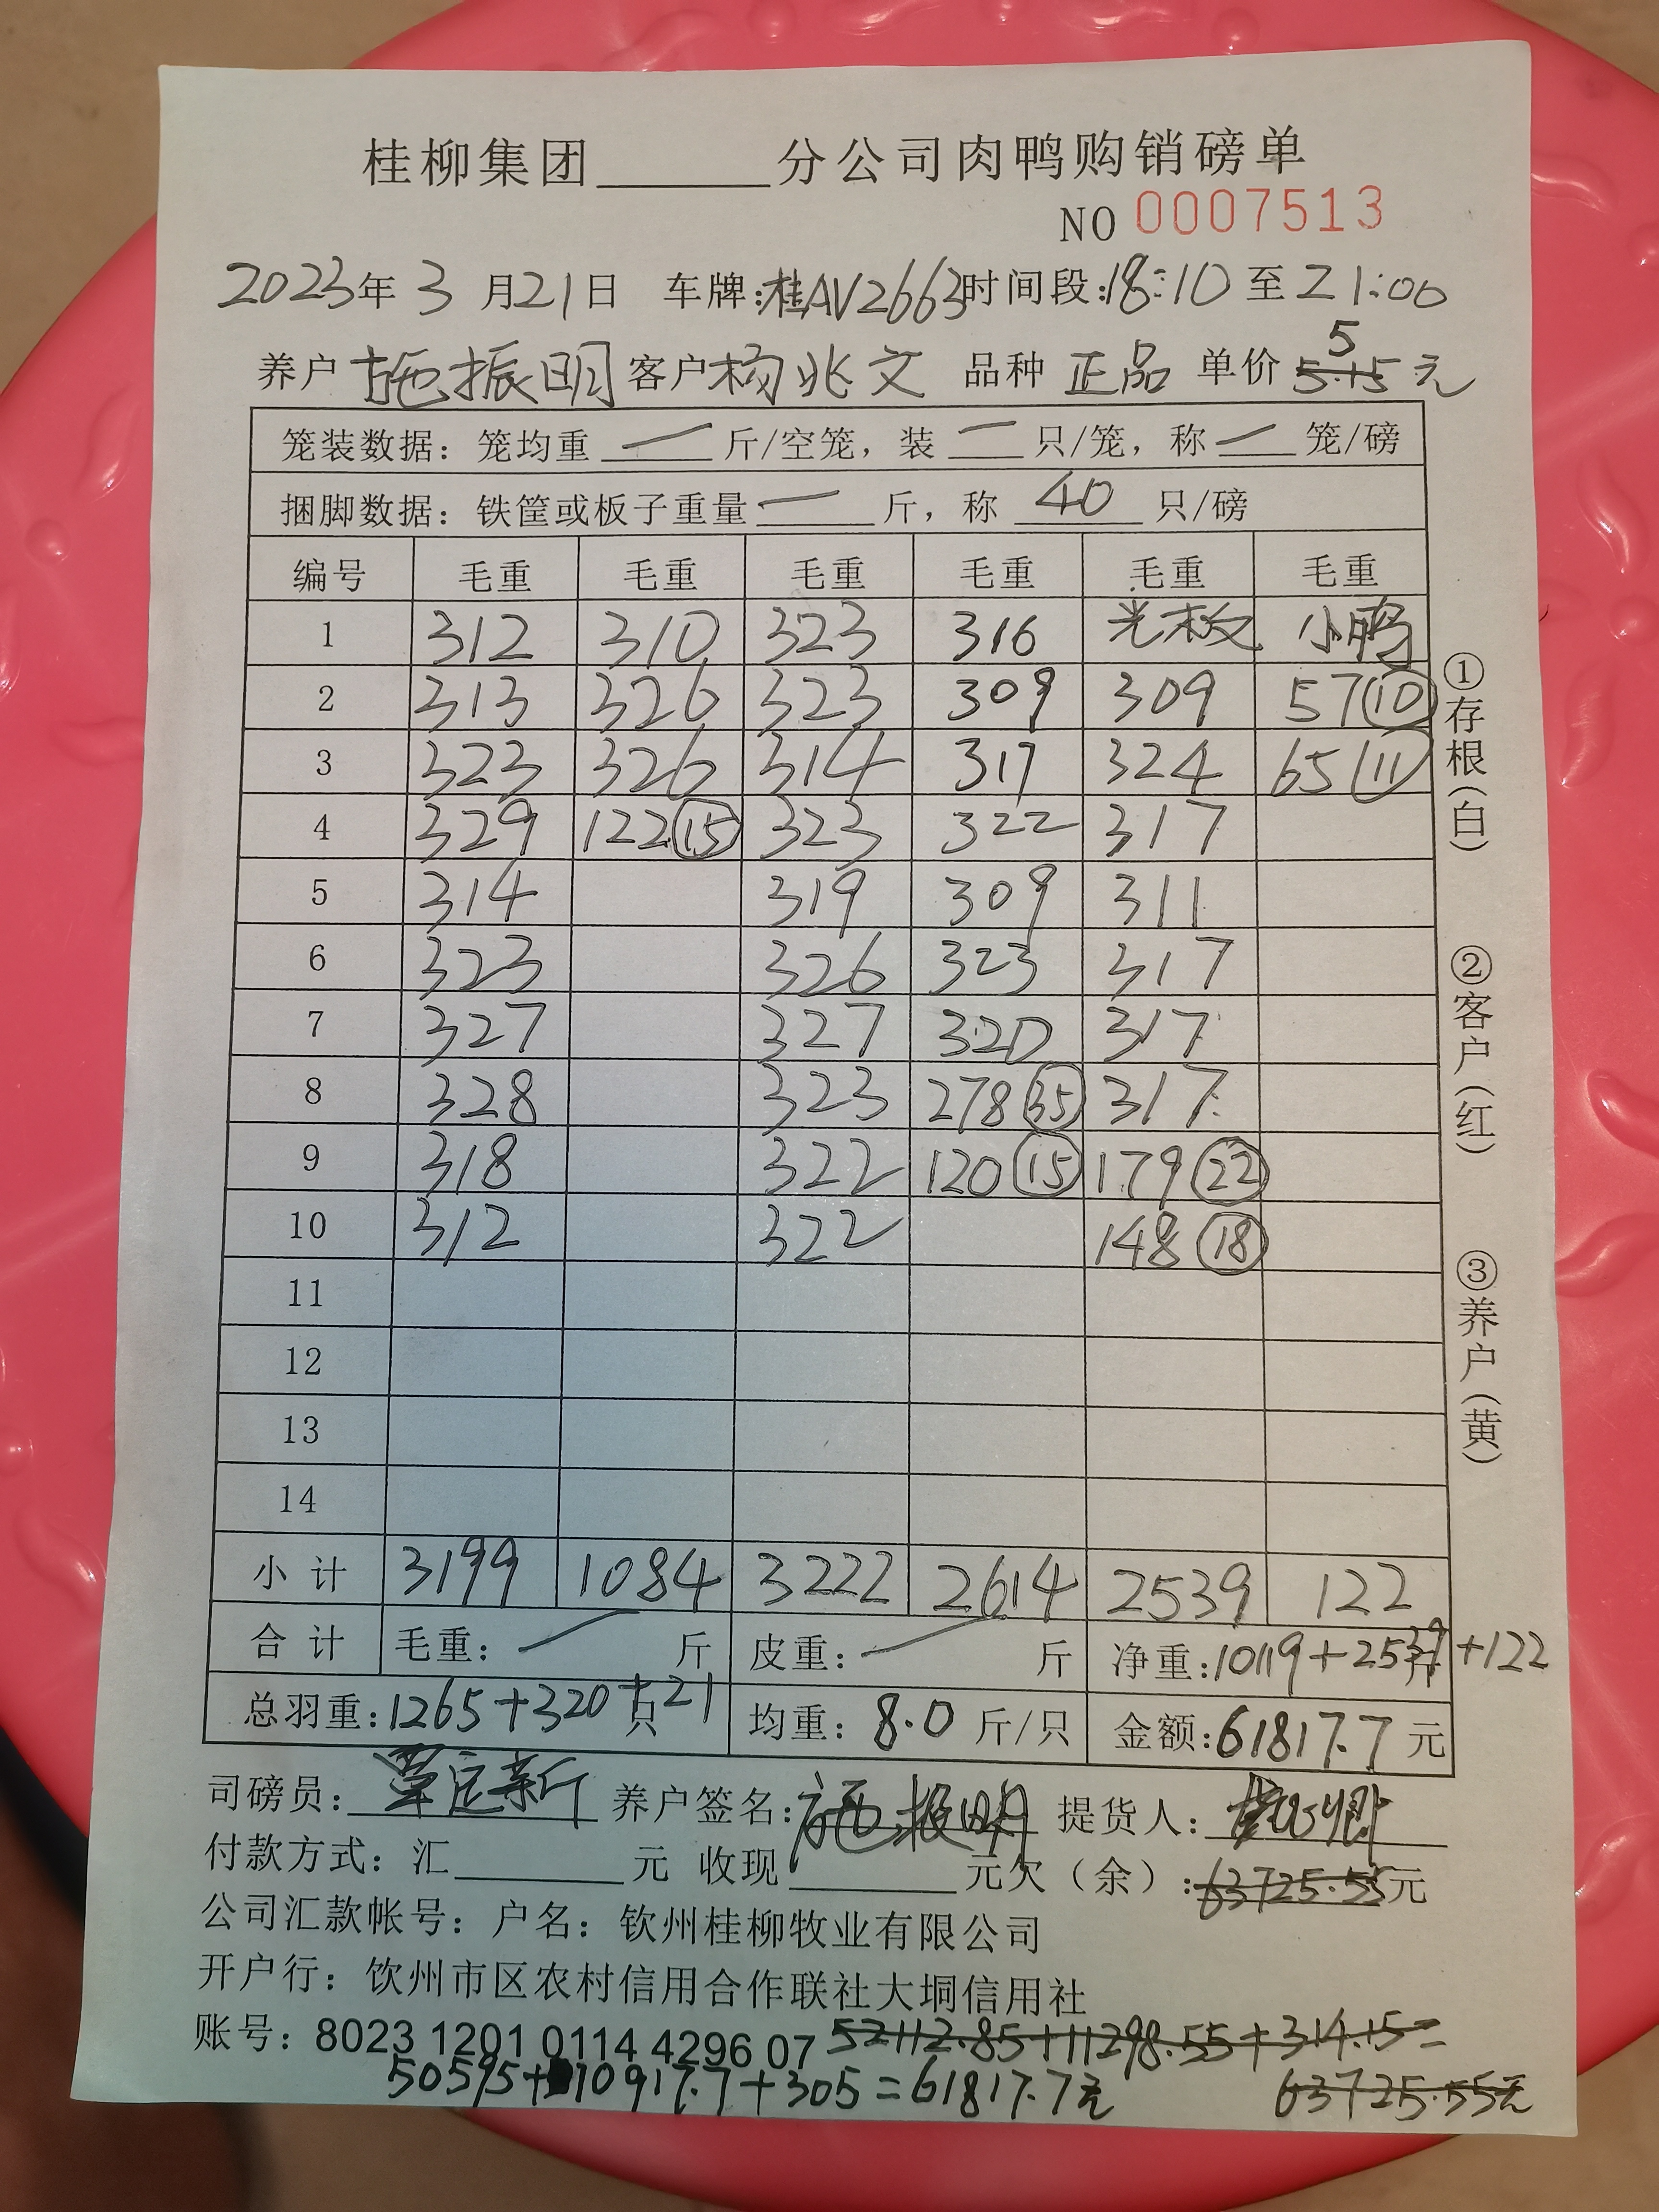 桂柳集团______分公司肉鸭购销磅单
NO 0007513
2023年 3 月21日 车牌:桂AV2663时间段:18:10 至 21:00
5
养户 施振明 客户 杨兆文 品种 正品 单价 5.15 元
笼装数据: 笼均重 一 斤/空笼, 装 一 只/笼, 称 一 笼/磅
捆脚数据: 铁筐或板子重量 一 斤, 称 40 只/磅
编号 毛重 毛重 毛重 毛重 毛重 毛重
1 312 310 323 316 光板 小鸭
2 313 326 323 309 309 57⑩
3 323 326 314 317 324 65⑪
4 329 122⑮ 323 322 317
5 314 319 309 311
6 323 326 323 317
7 327 327 320 317
8 328 323 278㉟ 317
9 318 322 120⑮ 179㉒
10 312 322 148⑱
11
12
13
14
小计 3199 1084 3222 2614 2539 122
合计 毛重: 斤 皮重: 斤 净重:10119+2539斤+122
总羽重:1265+320+21只 均重: 8.0 斤/只 金额:61817.7 元
司磅员: 覃定新 养户签名: 施振明 提货人:
付款方式: 汇______元 收现______元欠(余):63725.55元
公司汇款帐号: 户名: 钦州桂柳牧业有限公司
开户行: 钦州市区农村信用合作联社大垌信用社
账号: 8023 1201 0114 4296 07 52112.85+11298.55+314.15=
50595+10917.7+305=61817.7元 63725.55元
①存根(白)
②客户(红)
③养户(黄)